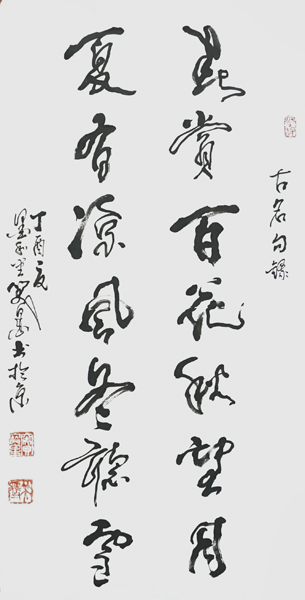 古名句錄
春賞百花秋望月
夏有涼風冬聽雪
丁酉夏
書於京